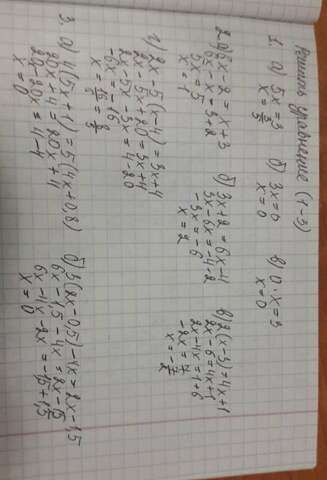 Решить уравнение (1-3)
1. а) 5x=3
x=3/5
б) 3x=0
x=0
в) 0·x=3
x=0
2. а) 6x-2=x+3
6x-x=3+2
5x=5
x=1
б) 3x+2=6x-4
3x-6x=-4-2
-3x=-6
x=2
в) 2(x-3)=4x+1
2x-6=4x+1
2x-4x=1+6
-2x=7
x=-7/2
г) 2x-5(-4)=3x+4
2x-5x+20=3x+4
2x-5x-3x=4-20
-6x=-16
x=16/6=8/3
3. а) 4(5x+1)=5(4x+0,8)
20x+4=20x+4
20-20x=4-4
x=0
б) 3(2x-0,5)-4x=2x-1,5
6x-1,5-4x=2x-1,5
6x-4x-2x=-1,5+1,5
x=0